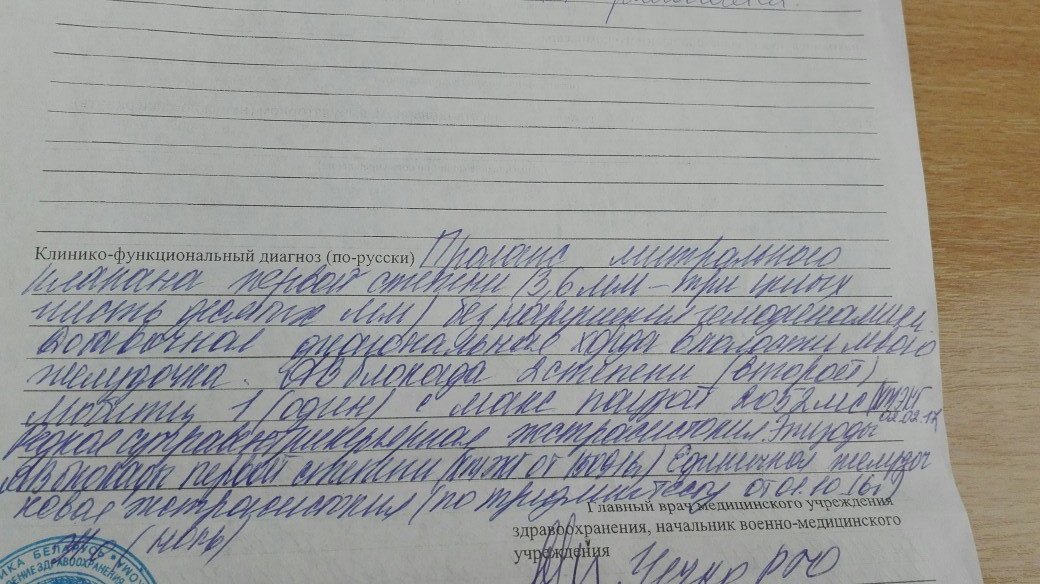 Клинико-функциональный диагноз (по-русски) Пролапс митрального
клапана первой степени (3,6 мм – три целых
шесть десятых мм) без нарушения гемодинамики
диагональная хорда в полости левого
желудочка. АВ блокада 2 степени (второй)
Мобитц 1 (один) с макс паузой 2052 мс
02.02.17
Редкая суправентрикулярная экстрасистолия. Эпизоды
АВ блокады первой степени от Единичная желудоч
ковая экстрасистолия (по от 01.10.16г)
Главный врач медицинского учреждения
здравоохранения, начальник военно-медицинского
учреждения
(ноль)
БЕЛАРУСЬ
ЗДРАВООХРАНЕНИЯ